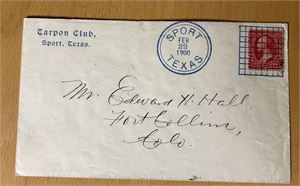 Tarpon Club,
Sport, Texas.
SPORT
FEB
23
1900
TEXAS
Mr. Edward H. Hall.
Fort Collins,
Colo.